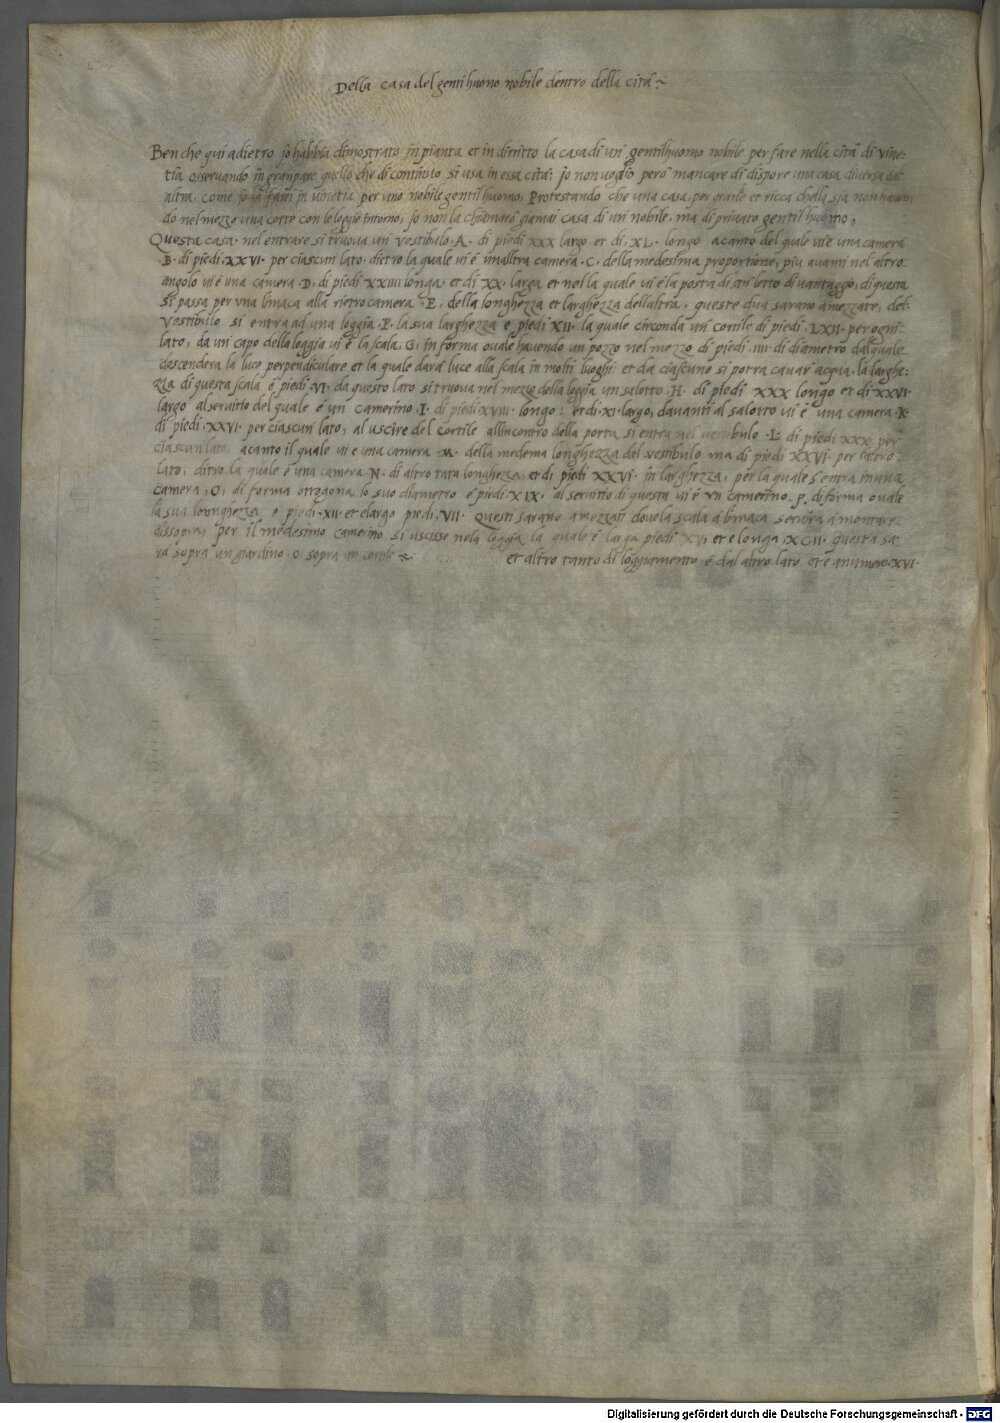 Della casa del gentilhuomo nobile dentro della cità
Benche qui adietro jo habbia dimostrato in pianta et in diritto la casa di un gentilhuomo nobile per fare nella cità di vine-
tia osservando in gran parte quello che di continuo si usa in essa cità: jo non voglio però mancare di dispore una casa diversa dal
altra, come jo la farei in vinetia per uno nobile gentil huomo, Protestando che una casa, per grande et ricca chella sia non haven-
do nel mezzo una corte con le loggie intorno, jo non la chiamarò giamai casa di un nobile, ma di privato gentil huomo,
Questa casa nel entrare si truova un vestibulo .A. di piedi XXX largo et di .XL. longo acanto del quale vi è una camera
.B. di piedi .XXVI. per ciascun lato, dietro la quale vi è unaltra camera .C. della medesima proportione, piu avanti nel altro
angolo vi è una camera .D. di piedi XXIIII longa et di XX. larga et nella quale vi è la posta di un letto di vantaggio, di questa
si passa per una limaca alla rietro camera .E. della longhezza et larghezza dellaltra, queste due sarano amezzate, del
vestibulo si entra ad una loggia .F. la sua larghezza e piedi XII. la quale circonda un cortile di piedi .LXII. per ogni
lato, da un capo della loggia vi è la scala .G. in forma ovale havendo un pozzo nel mezzo di piedi .IIII. di diametro dal quale
descenderà la luce perpendiculare et la quale darà luce alla scala in molti luoghi et da ciascuno si potra cavar acqua, la larghe-
zza di questa scala è piedi .VI. da questo lato si truova nel mezzo della loggia un salotto .H. di piedi XXX longo et di XXVI.
largo al servitio del quale è un camerino .I. di piedi XVIII. longo: et di XI. largo, davanti al salotto vi è una camera .K.
di piedi .XXVI. per ciascun lato, al uscire del cortile allincontro della porta si entra nel vestibulo .L. di piedi XXX per
ciascun lato, acanto il quale vi e una camera .M. della medema longhezza del vestibulo ma di piedi XXVI. per laltro
lato, dietro la quale è una camera .N. di altro tata longhezza et di piedi XXVI. in larghezza, per la quale s'entra in una
camera, O, di forma ottogona lo suo diametro è piedi XIX. al servitio di questa vi è un camerino .P. di forma ovale
la sua lonnghezza e piedi .XII. et e largo piedi, VII. Questi sarano amezzati dove la scala a limaca servira a montare
dissopra, per il medesimo camerino si uscisse nela loggia la quale è larga piedi XV. et e longa XCII. questa sa-
rà sopra un giardino o sopra un cortile
et altro tanto di loggiamento è dal altro lato et è a numero XVI.
Digitalisierung gefördert durch die Deutsche Forschungsgemeinschaft - DFG